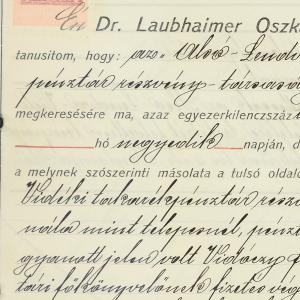 Én Dr. Laubhaimer Oszká
tanusitom, hogy: az „Alsó-Lendv
pénztár részvény-társasá
megkeresésére ma, azaz egyezerkilenczszáz
hó negyedik napján, d
a melynek szószerinti másolata a tulsó oldalo
Vidéki takarékpénztár rész
nála mint telepesnél, pénz
gyanott jelen volt Vidóczy
tári főkönyvelőnek fizetés vég